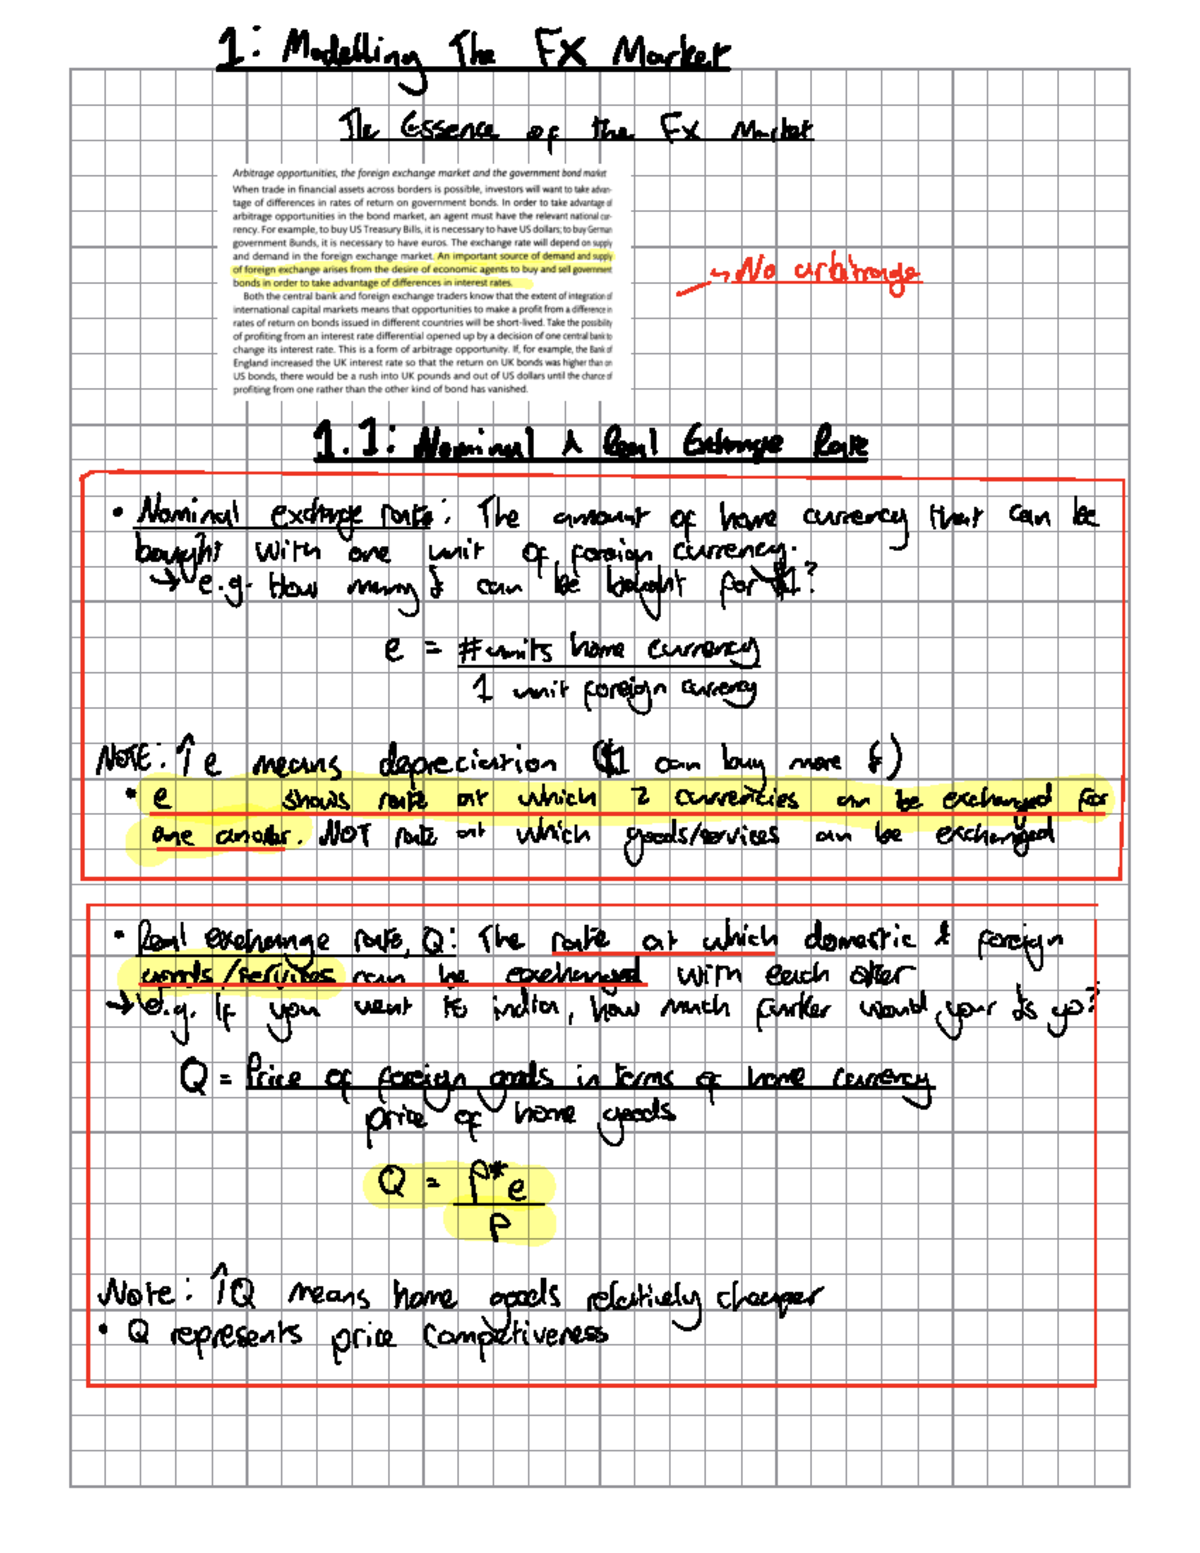 1: Modelling The FX Market
The Essence of the FX Market
Arbitrage opportunities, the foreign exchange market and the government bond market
When trade in financial assets across borders is possible, investors will want to take advan-
tage of differences in rates of return on government bonds. In order to take advantage of
arbitrage opportunities in the bond market, an agent must have the relevant national cur-
rency. For example, to buy US Treasury Bills, it is necessary to have US dollars; to buy German
government Bunds, it is necessary to have euros. The exchange rate will depend on supply
and demand in the foreign exchange market. An important source of demand and supply
of foreign exchange arises from the desire of economic agents to buy and sell government
bonds in order to take advantage of differences in interest rates.
→ No arbitrage
Both the central bank and foreign exchange traders know that the extent of integration of
international capital markets means that opportunities to make a profit from a difference in
rates of return on bonds issued in different countries will be short-lived. Take the possibility
of profiting from an interest rate differential opened up by a decision of one central bank to
change its interest rate. This is a form of arbitrage opportunity. If, for example, the Bank of
England increased the UK interest rate so that the return on UK bonds was higher than on
US bonds, there would be a rush into UK pounds and out of US dollars until the chance of
profiting from one rather than the other kind of bond has vanished.
1.1: Nominal & Real Exchange Rate
• Nominal exchange rate: The amount of home currency that can be
bought with one unit of foreign currency.
→ e.g. How many £ can be bought for $1?
e = #units home currency
1 unit foreign currency
NOTE: ↑e means depreciation ($1 can buy more £)
• e shows rate at which 2 currencies can be exchanged for
one another. NOT rate at which goods/services can be exchanged
• Real exchange rate, Q: The rate at which domestic & foreign
goods/services can be exchanged with each other
→ e.g. If you went to india, how much further would your £s go?
Q = Price of foreign goods in terms of home currency
price of home goods
Q = P*e
P
Note: ↑Q means home goods relatively cheaper
• Q represents price competiveness